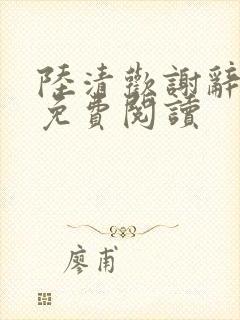 陸清歡謝辭
免費閱讀
廖甫